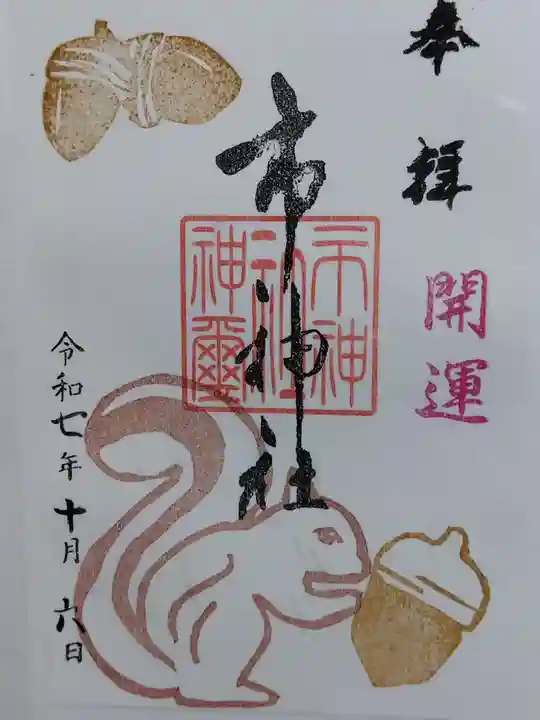 奉拝
開運
市神社
市神社神璽
令和七年十月六日